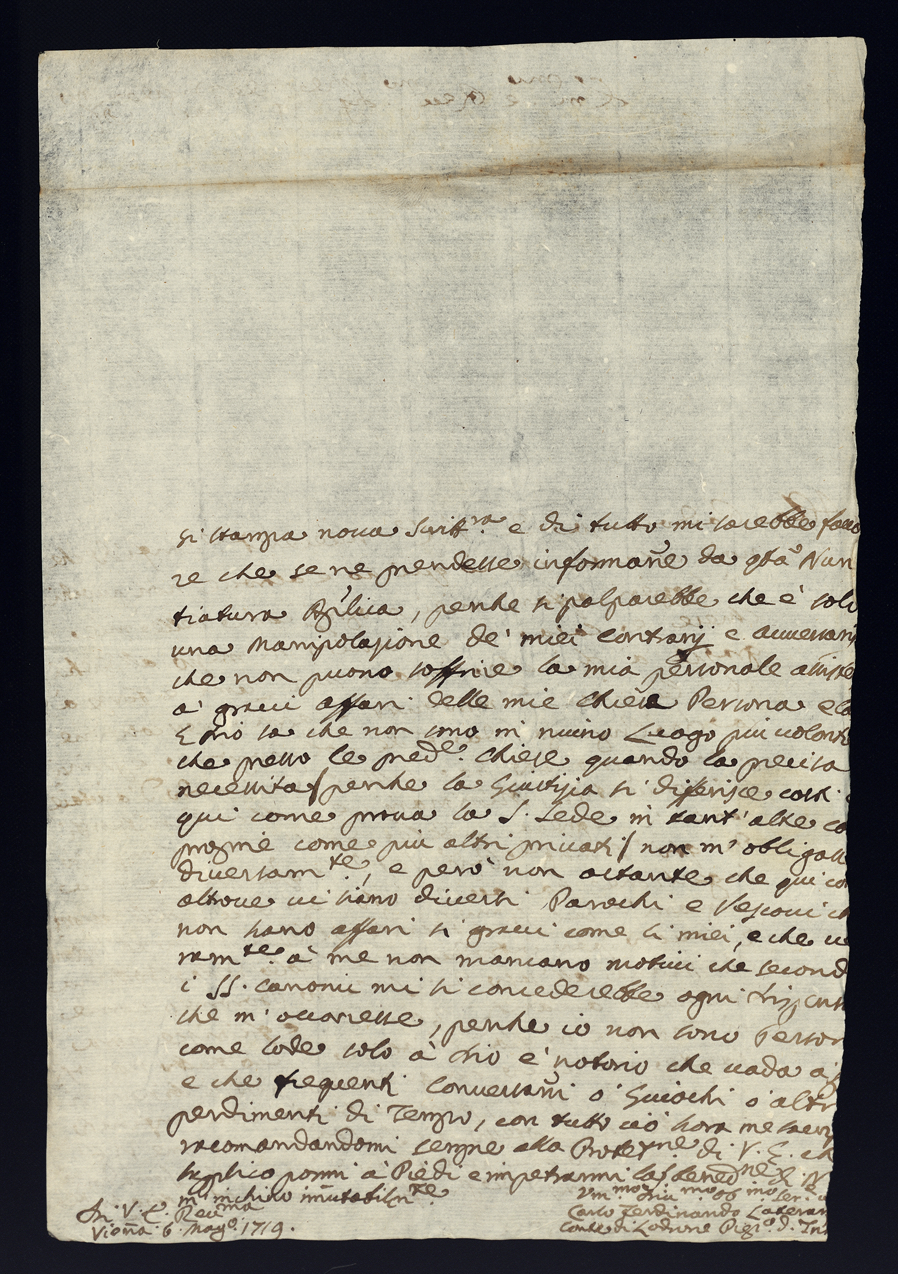 si stampa nova Scritt.ra e di tutto mi sarebbe favo
re che se ne prendesse informãne da q̃ta Nun
tiatura Ap̃lica, perche si palparebbe che è solo
una Manipolazione de' miei contrarij e avversarij
che non puono soffrire la mia personale assiste
a' gravi affari delle mie Chiese Persona e
Dio sa che non sono in niuno Luogo più volont
che presso le pred.e Chiese quando la precisa
necessita/perche la Giustizia si differisce così
qui come prova la S. Sede in tant' altre co
proprie come più altri privati/ non m' obligass
diversam.te, e però non ostante che qui co
altrove vi siano diversi Parochi e Vescovi ch
non hano affari si gravi come li miei, e che ve
ram.te à me non mancano motivi che second
i SS. canoni mi si concederebbe ogni
che m' occoresse, perche io non sono Person
come lode solo à Dio è notorio che vada a
e che frequenti Conversãni ò Giuochi ò altri
perdimenti di Tempo, con tutto ciò hora me
racomandandomi sempre alla Protez.ne di V. E. ch
supplico pormi à Piedi e impetrarmi la S. bened.ne di N
m' inchino immutabilm.te
Di V. E. Rev.ma
Vieña 6. Mag.o 1719.
Um.mo Div.mo Ob.mo Ser.
Carlo Ferdinando Lateran
Conte di Lodrone